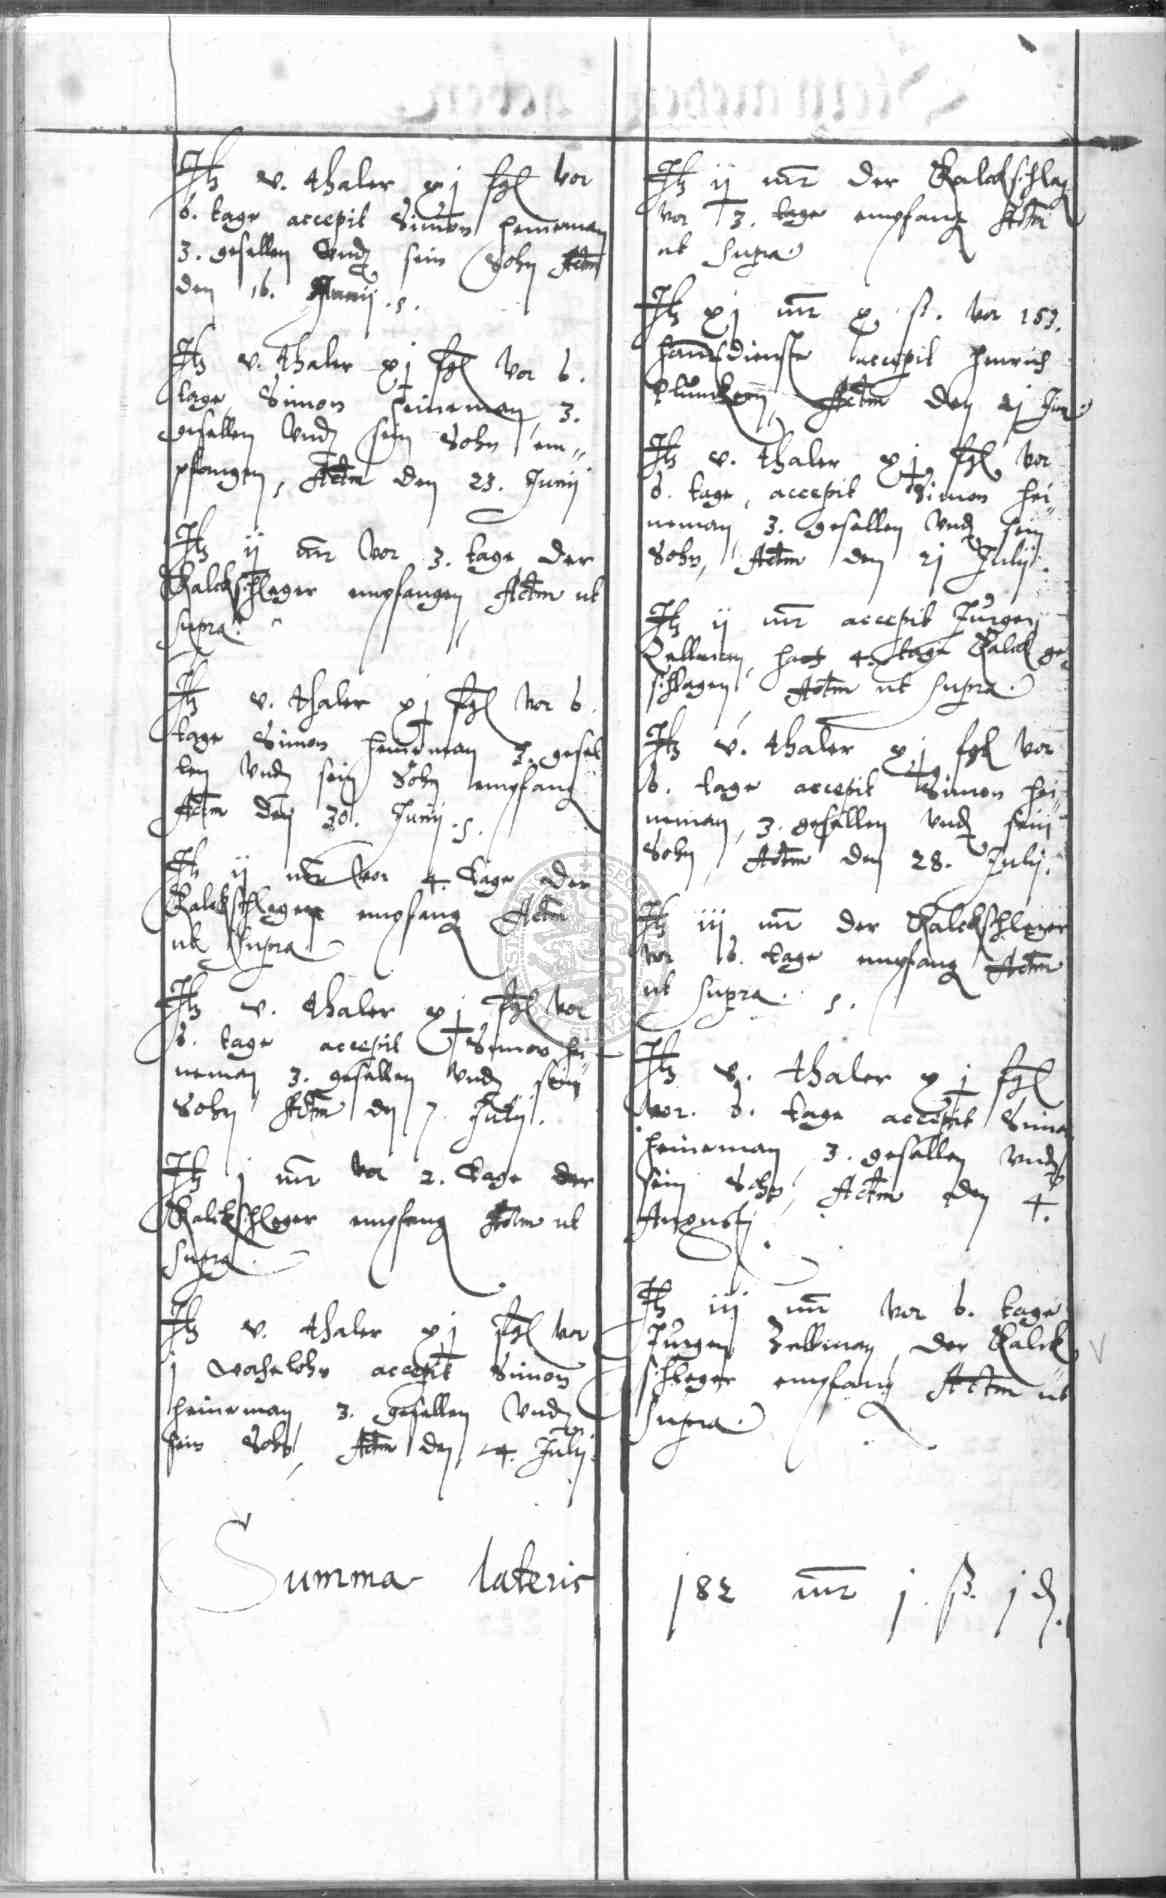 Itz v. thaler xj fgl vor
6. tage accepit Simon heineman
3. gesellen Undt sein Sohn Actm
den 16. Junij .s.
Itz v. thaler xj fgl vor 6.
tage Simon heineman, 3.
gesellen Undt sein Sohn em-
pfangen, Actm den 23. Junij
Itz ij mr vor 3. tage, der
Kalckschleger empfangen Actm ut
supra.
Itz v. thaler xj fgl vor 6.
tage Simon heineman 3. gesel
len Undt sein Sohn empfang
Actm den 30. Junij .s.
Itz ij mr vor 4. tage der
Kalckschleger empfang Actm
ut supra
Itz v. thaler xj fgl vor
6. tage accepit Simon hei-
neman 3. gesellen Undt sein
Sohn Actm den 7. Julij.
Itz j mr vor 2. tage der
Kalckschleger empfang Actm ut
supra.
Itz v. thaler xj fgl vor
j wochelohn accepit Simon
heineman, 3. gesellen Undt
sein Sohn, Actm den 14. Julij.
Summa lateris
Itz ij mr der Kalckschlag
vor 3. tage empfang Actm
ut supra
Itz xj mr x ß. vor 153.
handtdienste accepit henrich
Actm den 21
Itz v. thaler xj fgl vor
6. tage, accepit Simon hei-
neman, 3. gesellen Undt sein
Sohn, Actm den 21 Julij.
Itz ij mr accepit Jürgen
Zellman, hatt 4. tage Kalck ge-
schlagen, Actm ut supra.
Itz v. thaler xj fgl vor
6. tage accepit Simon hei-
neman, 3. gesellen Undt sein
Sohn, Actm den 28. Julij.
Itz iij mr der Kalckschleger
vor 6. tage empfang Actm
ut supra. s.
Itz v. thaler xj fgl
vor. 6. tage accepit Simon
heineman, 3. gesellen Undt
sein Sohn, Actm den 4.
Augusti.
Itz iij mr vor 6. tage
Jürgen Zellman, der Kalck
schleger empfang Actm ut
supra.
182 mr j. ß. j d.